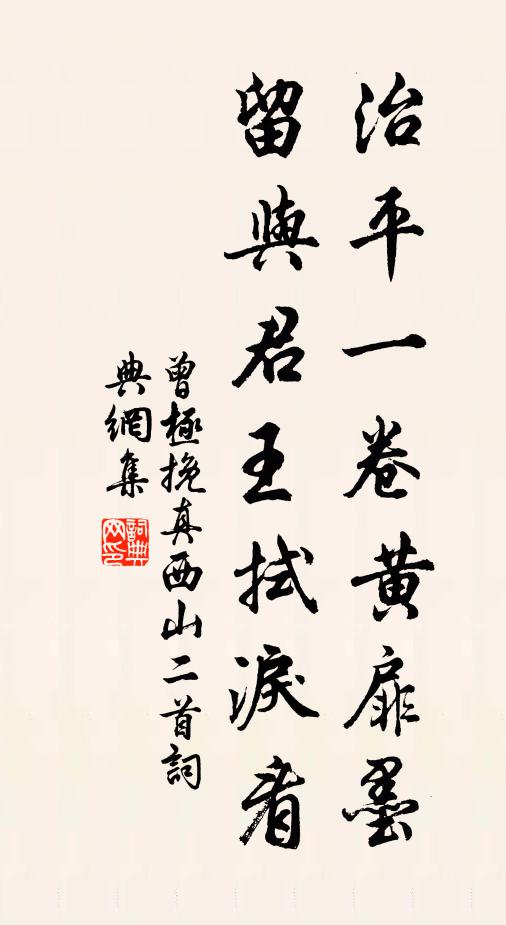 治平一卷黄扉墨
留與君王拭淚看
曾極挽真西山二首詞
典網集
詞典網印